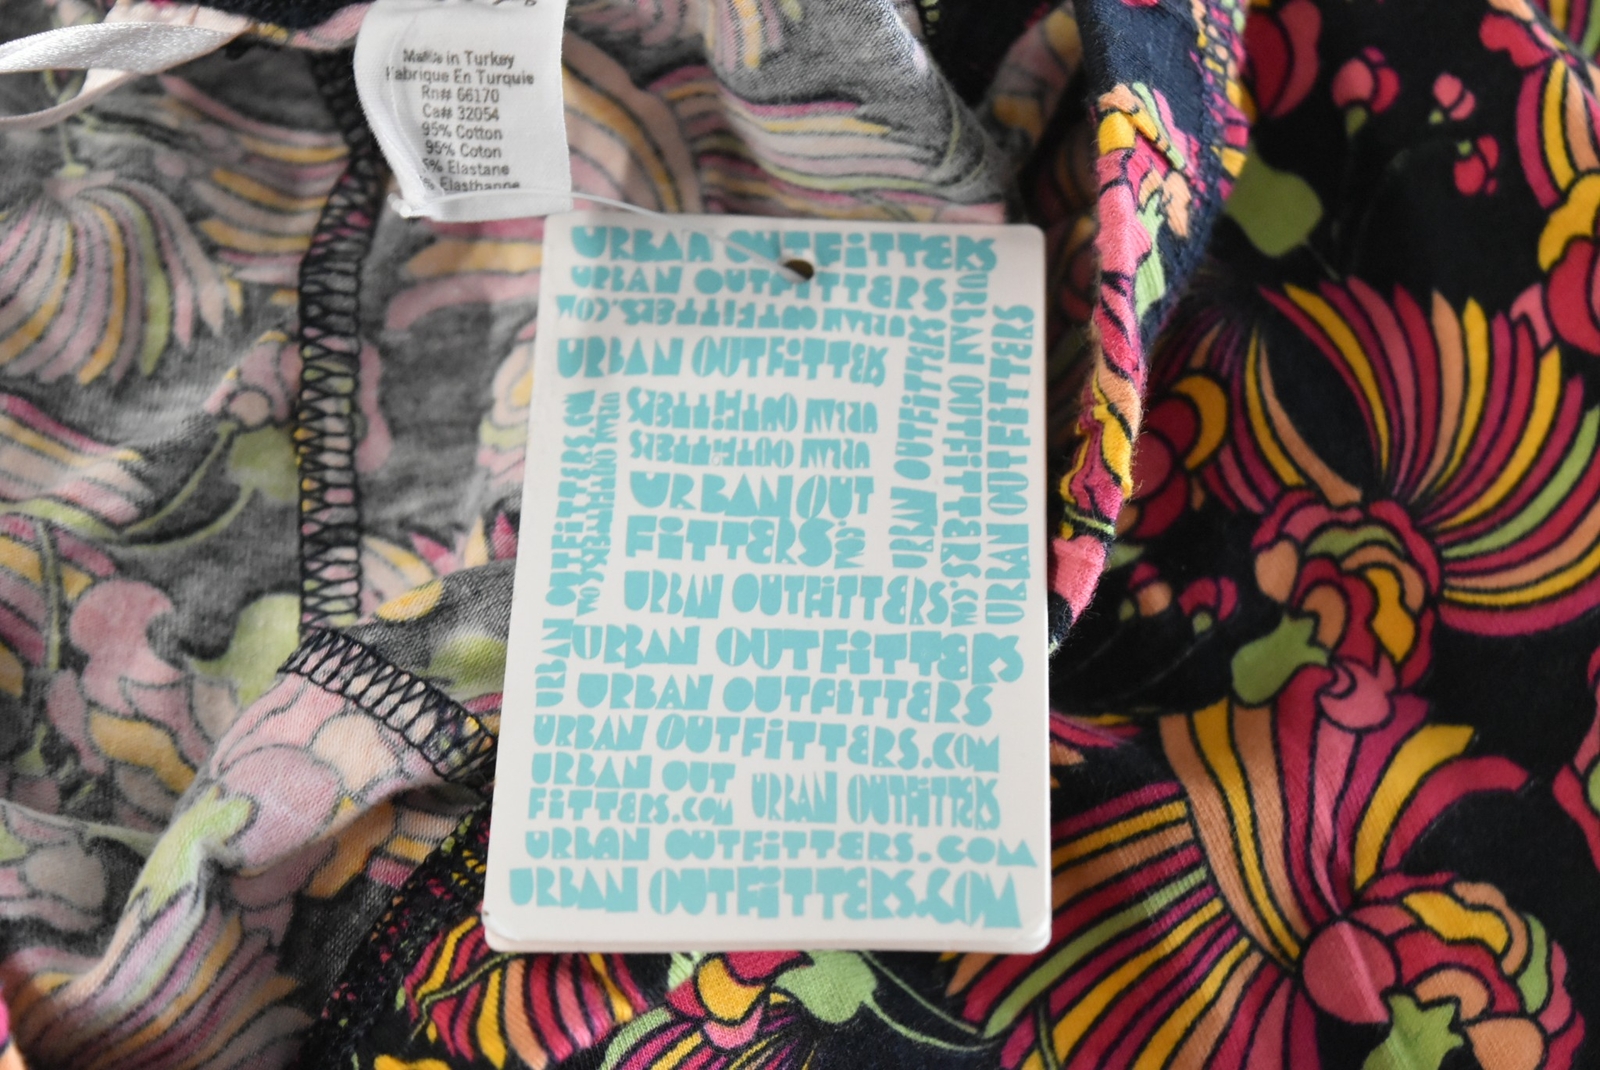 Made in Turkey
Fabrique En Turquie
Rn# 66170
Ca# 32054
95% Cotton
95% Coton
5% Elastane
% Elasthanne
URBAN OUTFITTERS
URBAN OUTFITTERS
URBAN OUTFITTERS.COM
URBAN OUTFITTER
URBAN OUTFITTERS
URBAN OUTFITTERS
URBAN OUT
FITTERS.COM
URBAN OUTFITTERS
URBAN OUTFITTERS.COM
URBAN OUTFITTERS
URBAN OUTFITTERS.COM
URBAN OUTFITTERS.COM
URBAN OUTFITTERS
URBAN
URBAN OUTFITTERS
URBAN OUTFITTERS
URBAN OUTFITTERS.COM
URBAN OUT
FITTERS.COM
URBAN OUTFITTERS
URBAN OUTFITTERS.COM
URBAN OUTFITTERS.COM